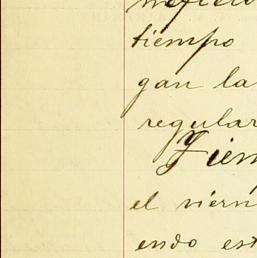 tiempo
gan la
regular
Tien
el viern
endo est